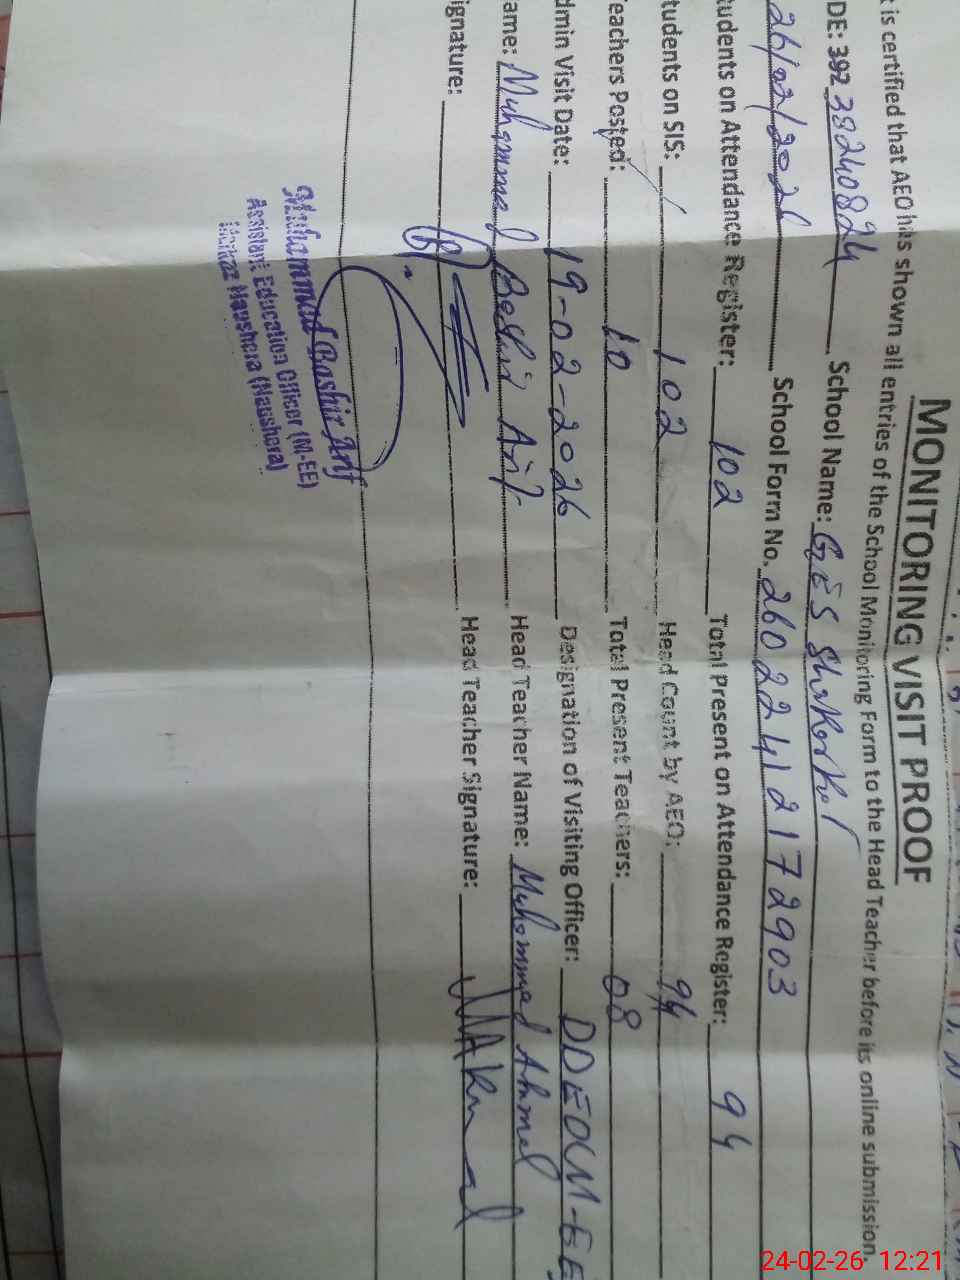 MONITORING VISIT PROOF
t is certified that AEO has shown all entries of the School Monitoring Form to the Head Teacher before its online submission.
DE: 392 38240824 School Name: GES Shakarkot
26/02/2026 School Form No. 26022412172903
tudents on Attendance Register: 102 Total Present on Attendance Register: 94
tudents on SIS: 102 Head Count by AEO: 94
eachers Posted: 10 Total Present Teachers: 08
dmin Visit Date: 19-02-2026 Designation of Visiting Officer: DDEO(M-EE
ame: Muhammad Bashir Arif Head Teacher Name: Muhammad Ahmad
ignature: Head Teacher Signature:
Muhammad Bashir Arif
Assistant Education Officer (M-EE)
Markaz Naushera (Naushera)
24-02-26 12:21